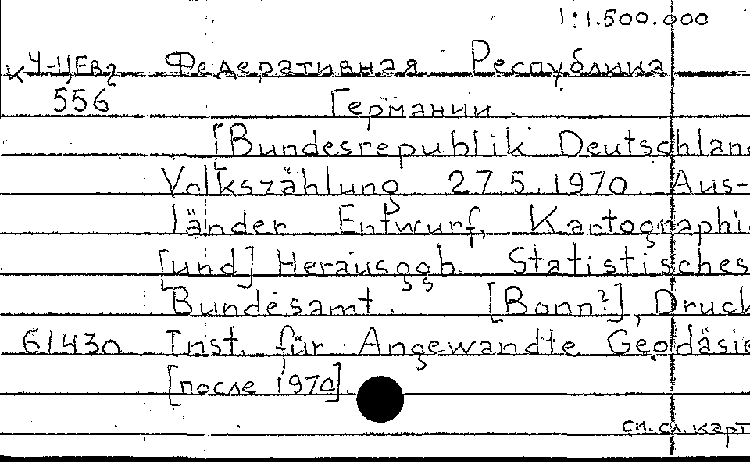 1:1.500.000
К Ч-ЦЕвг Федеративная Республика
556 Германии.
[Bundesrepublik Deutschlan
Volkszählung 27.5.1970 Aus-
länder. Entwurf, Kartographi
[und] Herausggb. Statistisches
Bundesamt. [Bonn?], Druck
61430 Inst. für Angewandte Geodäsie
[после 1970].
см. сл. карт